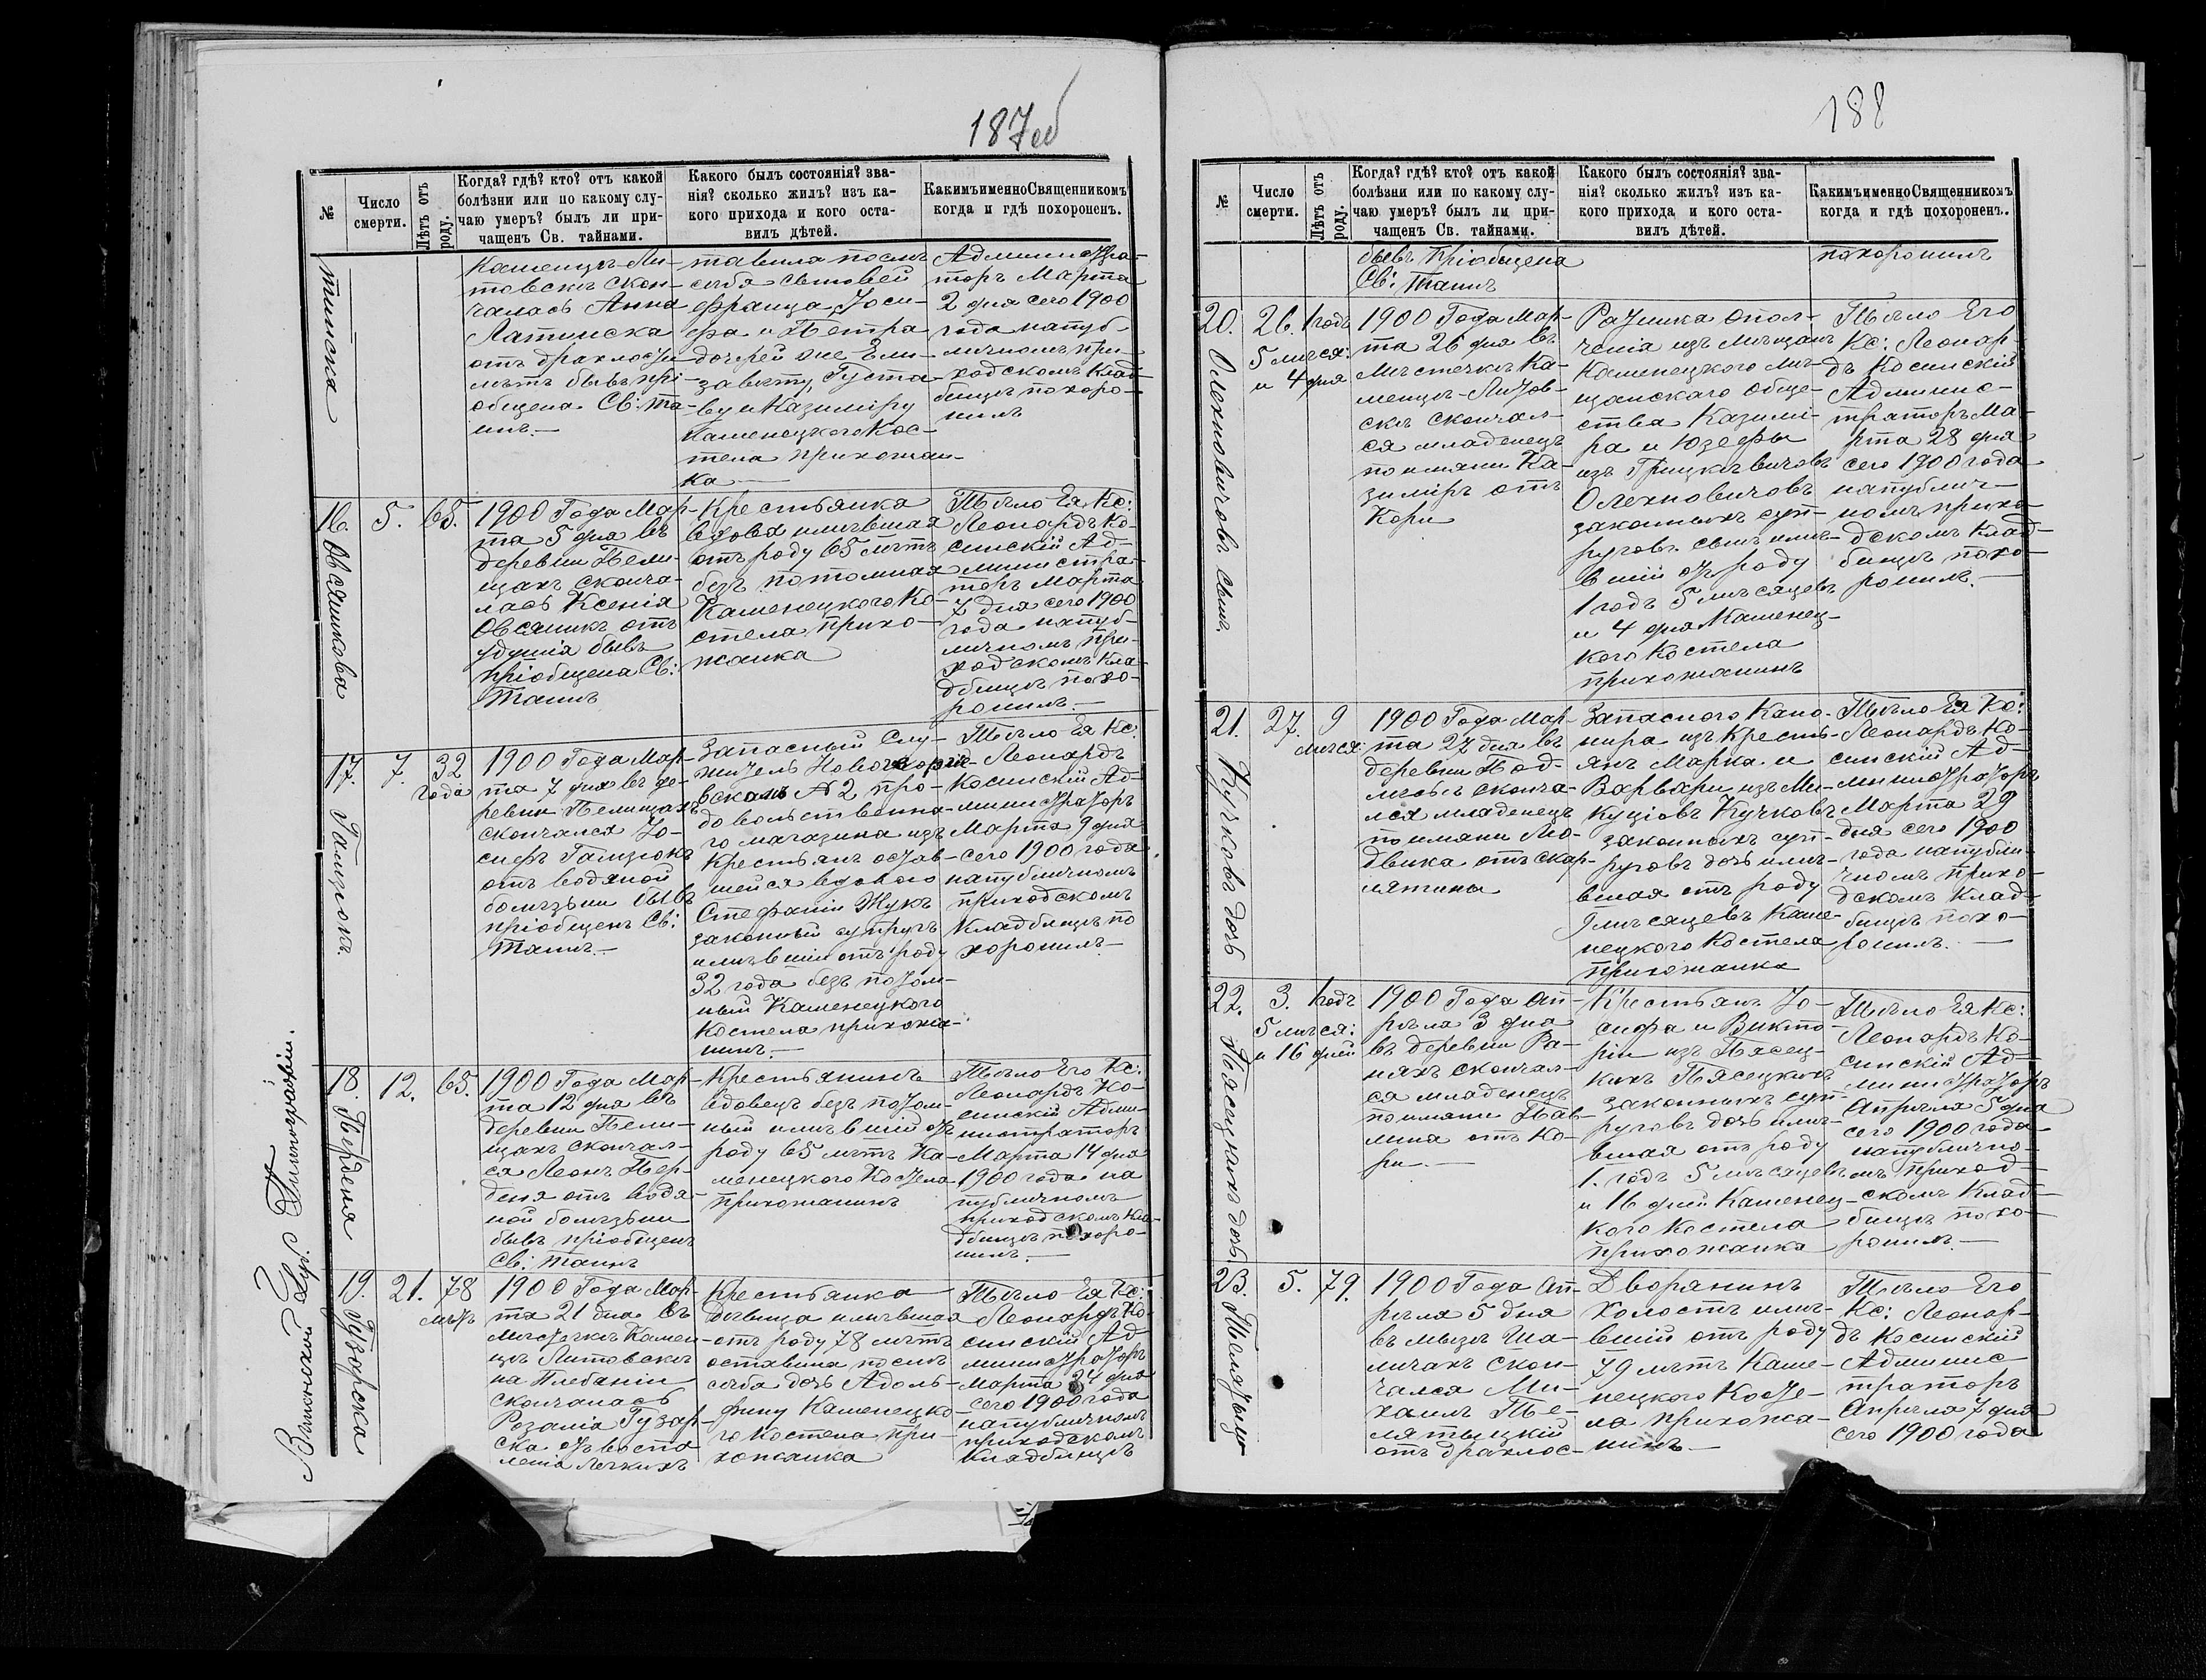 187об
№
Число смерти.
Лѣтъ отъ роду.
Когда? гдѣ? кто? отъ какой
болѣзни или по какому слу-
чаю умеръ? былъ ли при-
чащенъ Св. тайнами.
Какого былъ состоянія? зва-
нія? сколько жилъ? изъ ка-
кого прихода и кого оста-
вилъ дѣтей.
Какимъ именно Священникомъ
когда и гдѣ похороненъ.
тинска
Каменцѣ-Ли-
товскѣ скон-
чалась Анна
Латинска
отъ драхлости
лѣтъ бывъ прі-
общена Св: та-
инъ.—
тавила послѣ
себя сыновей
Франца, Іоси-
фа и Петра
дочерей оне Ели-
завету, Густа-
ву и Казиміру
Каменецкого Кос-
тела прихожан-
ка —
Администра-
торъ Марта
2 дня сего 1900
года на пуб-
личномъ при-
ходскомъ Клад-
бищѣ похоро-
нилъ
16.
Овсяникова
5.
65.
1900 Года Мар-
та 5 дня въ
деревни Пели-
щахъ сконча-
лась Ксенія
Овсяникъ отъ
удушія бывъ
пріобщена Св:
Таинъ
Крестьянка
вдова имѣвшая
отъ роду 65 лѣтъ
безъ потомная
Каменецкого Ко-
стела прихо-
жанка
Тѣло Ея Кс:
Леонардъ Ко-
синскій Ад-
министра-
торъ Марта
7 дня сего 1900
года на пуб-
личномъ при-
ходскомъ Кла-
дбищѣ похо-
ронилъ.—
17.
Гамзюкъ
7.
32 года
1900 Года Мар-
та 7 дня въ де-
ревни Пелищахъ
скончался Іо-
сифъ Гамзюкъ
отъ водяной
болѣзни бывъ
пріобщенъ Св:
Таинъ.—
Запасный Слу-
житель Новогеоргіе-
вскаго № 2 про-
довольственна-
го магазина изъ
Крестьянъ остав-
шейся вдовою
Стефаніи Жукъ
законный супругъ
имѣвшій отъ роду
32 года безъ потом-
ный Каменецкого
Костела прихожа-
нинъ.—
Тѣло Ея Кс.
Леонардъ
Косинскій Ад-
министраторъ
Марта 9 дня
сего 1900 года
на публичномъ
приходскомъ
Кладбищѣ по
хоронилъ.—
18.
Пердена
12.
65.
1900 Года Мар-
та 12 дня въ
деревни Пели-
щахъ скончал-
ся Леонъ Пер-
деня отъ водя-
ной болѣзни
бывъ пріобщенъ
Св: Таинъ
Крестьянинъ
вдовецъ безъ потом-
ный имѣвшій отъ
роду 65 лѣтъ Ка-
менецкого Костела
прихожанинъ
Тѣло Его Кс.
Леонардъ Ко-
синскій Адми-
нистраторъ
Марта 14 дня
1900 года на
публичномъ
приходскомъ Кла-
дбищѣ похоро-
нилъ.—
19.
Гузарска
21.
78 лѣтъ
1900 Года Мар-
та 21 дня въ
Мѣстечкѣ Камен-
цѣ Литовскѣ
на Плебаніи
скончалась
Розалія Гузар-
ска отъ воспа
ленія Легкихъ
Крестьянка
дѣвица имѣвшая
отъ роду 78 лѣтъ
оставила послѣ
себя дочь Адоль-
фину Каменецко-
го костела при-
хожанка
Тѣло Ея Кс:
Леонардъ Ко-
синскій Ад-
министраторъ
марта 24 дня
сего 1900 года
на публичномъ
приходскомъ
кладбищѣ
188
№
Число смерти.
Лѣтъ отъ роду.
Когда? гдѣ? кто? отъ какой
болѣзни или по какому слу-
чаю умеръ? былъ ли при-
чащенъ Св. тайнами.
Какого былъ состоянія? зва-
нія? сколько жилъ? изъ ка-
кого прихода и кого оста-
вилъ дѣтей.
Какимъ именно Священникомъ
когда и гдѣ похороненъ.
бывъ пріобщена
Св: Таинъ
похоронилъ
20.
Олехновичовъ сынъ.
26.
1 годъ
5 мѣсяц:
и 4 дня
1900 Года Мар-
та 26 дня въ
Мѣстечкѣ Ка-
менцѣ-Литов-
скѣ скончал-
ся младенецъ
по имяни Ка-
зиміръ отъ
Кори
Ратника опол-
ченія изъ мѣщанъ
Каменецкого Мѣ-
щанскаго обще-
ства Казимі-
ра и Юзефы
изъ Грицкевичовъ
Олехновичовъ
законныхъ суп-
руговъ сынъ имѣ-
вшій отъ роду
1 годъ 5 мѣсяцевъ
и 4 дня Каменец-
кого Костела
прихожанинъ
Тѣло Его
Кс: Леонар-
дъ Косинскій
Админис-
траторъ Ма-
рта 28 дня
сего 1900 года
на публич-
номъ прихо-
дскомъ Клад-
бищѣ похо-
ронилъ.—
21.
Кучковъ дочь
27.
9 мѣсяц:
1900 Года Мар-
та 27 дня въ
деревни Под-
лесьѣ сконча-
лся младенецъ
по имяни Лю-
двика отъ скар-
лятины
Запасного Кано-
нира изъ Кресть-
янъ Марка и
Варвары изъ Ми-
куціовъ Кучковъ
законныхъ суп-
руговъ дочь имѣ-
вшая отъ роду
9 мѣсяцевъ Каме-
нецкого Костела
прихожанка
Тѣло Ея Кс:
Леонардъ Ко-
синскій Ад-
министраторъ
Марта 29
дня сего 1900
года на публи-
чномъ прихо-
дскомъ Клад-
бищѣ похо-
ронилъ.—
22.
Пясецкихъ дочь
3.
1 годъ
5 мѣсяц:
и 16 дней
1900 Года Ап-
рѣля 3 дня
въ деревни Ра-
сняхъ скончал-
ся младенецъ
по имяни Пав-
лина отъ Ко-
ри.—
Крестьянъ Іо-
сифа и Викто-
ріи изъ Пясец-
кихъ Пясецкихъ
законныхъ суп-
руговъ дочь имѣ-
вшая отъ роду
1. годъ 5 мѣсяцевъ
и 16 дней Каменец-
кого Костела
прихожанка
Тѣло Ея Кс:
Леонардъ Ко-
синскій Ад-
министраторъ
Апрѣля 5 дня
сего 1900 года
на публично-
мъ приход-
скомъ Клад-
бищѣ похо-
ронилъ.—
23.
5.
79.
1900 Года Ап-
рѣля 5 дня
въ мызѣ Ша-
личахъ скон-
чался Ми-
хаилъ Те-
лятыцкій
отъ драхлос-
Дворянинъ
Холостъ имѣ-
вшій отъ роду
79 лѣтъ Каме-
нецкого Косте-
ла прихожа-
нинъ.—
Тѣло Его
Кс: Леонар-
дъ Косинскій
Админис
траторъ
Апрѣля 7 дня
сего 1900 года